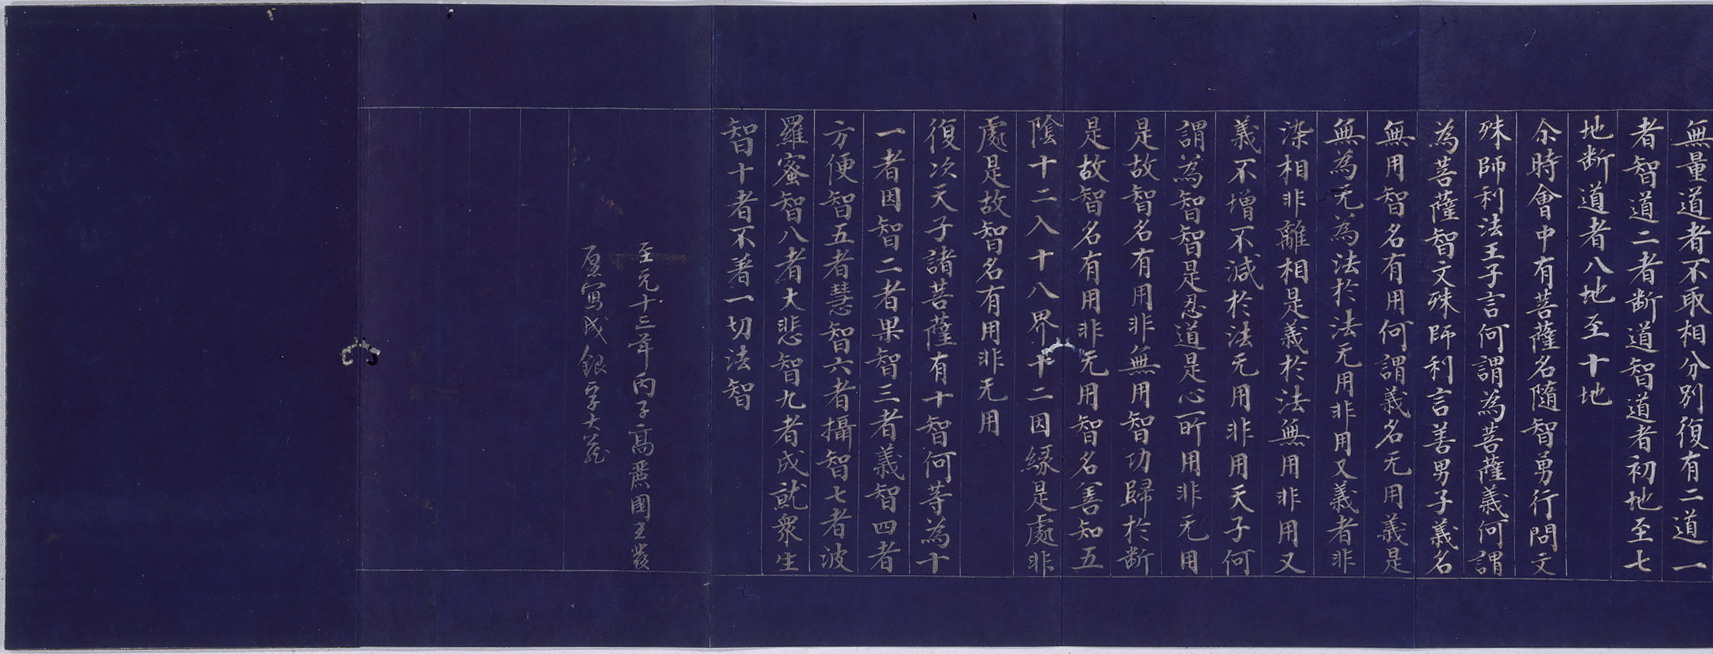 無量道者不取相分別復有二道一
者智道二者断道智道者初地至七
地断道者八地至十地
尒時會中有菩薩名隨智勇行問文
殊師利法王子言何謂為菩薩義何謂
為菩薩智文殊師利言善男子義名
無用智名有用何謂義名无用義是
無為无為法於法无用非用又義者非
染相非離相是義於法無用非用又
義不增不減於法无用非用天子何
謂為智智是忍道是心所用非无用
是故智名有用非無用智功歸於断
是故智名有用非无用智名善知五
陰十二入十八界十二因縁是處非
處是故智名有用非无用
復次天子諸菩薩有十智何等為十
一者因智二者果智三者義智四者
方便智五者慧智六者攝智七者波
羅蜜智八者大悲智九者成就衆生
智十者不著一切法智
至元十三年丙子高麗國王發
願寫成銀字大蔵